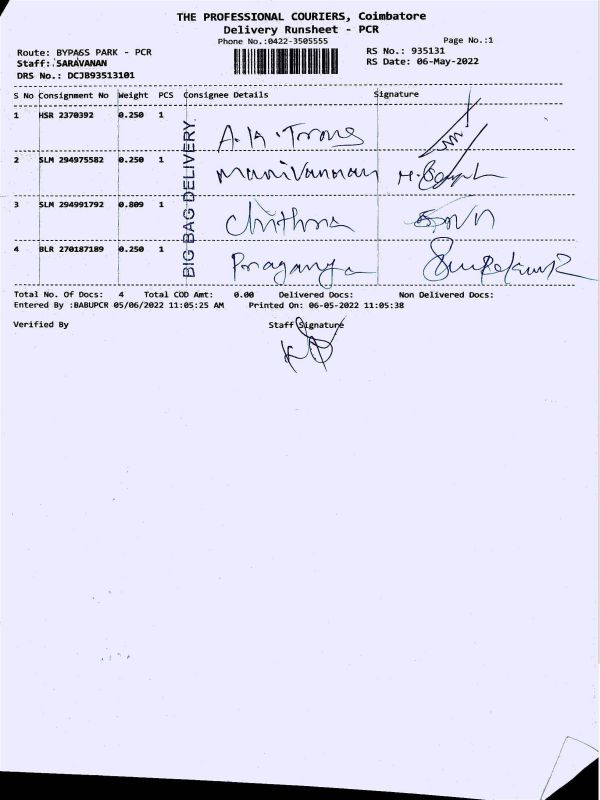 THE PROFESSIONAL COURIERS, Coimbatore
Delivery Runsheet - PCR
Phone No.:0422-3505555
Page No.:1
Route: BYPASS PARK - PCR
RS No.: 935131
Staff: SARAVANAN
RS Date: 06-May-2022
DRS No.: DCJB93513101
S No Consignment No Weight PCS Consignee Details Signature
1 HSR 2370392 0.250 1
2 SLM 294975582 0.250 1 Manivannan
3 SLM 294991792 0.809 1 Chithra
4 BLR 270187189 0.250 1
BIG BAG DELIVERY
Total No. Of Docs: 4 Total COD Amt: 0.00 Delivered Docs: Non Delivered Docs:
Entered By :BABUPCR 05/06/2022 11:05:25 AM Printed On: 06-05-2022 11:05:38
Verified By Staff Signature